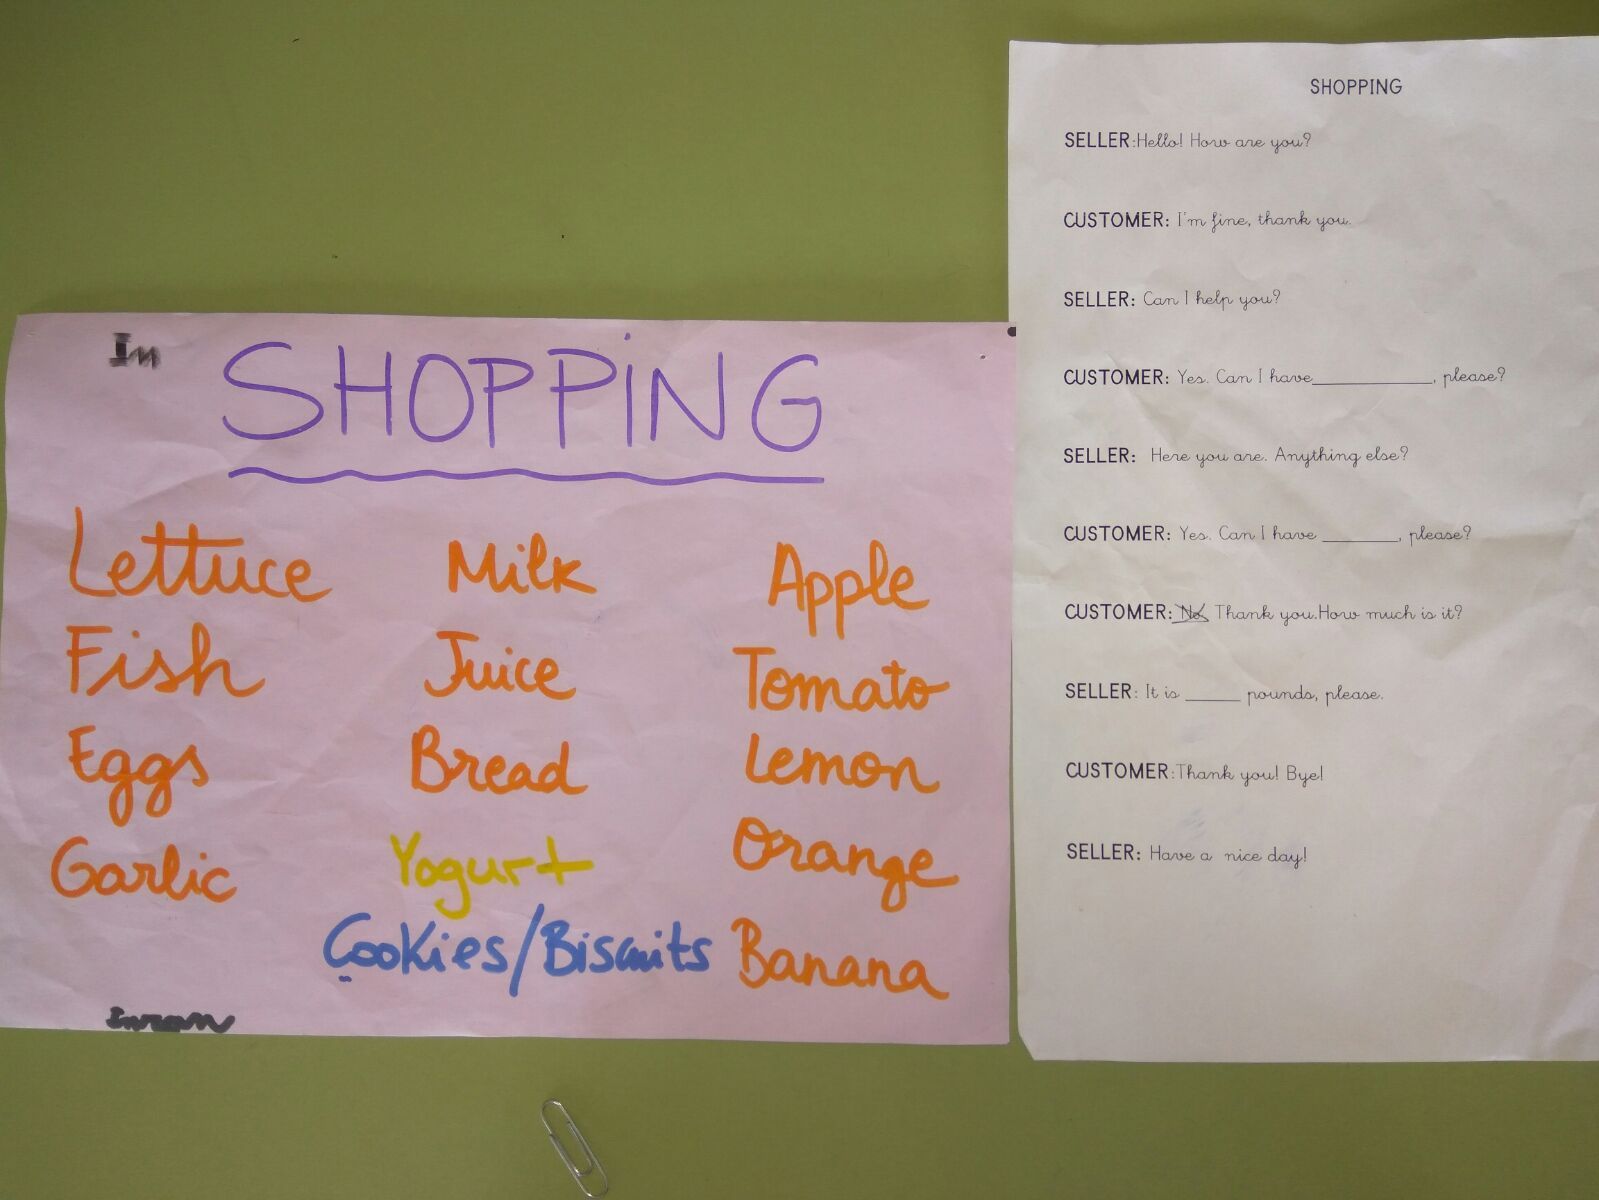 Im
SHOPPiNG
Lettuce
Fish
Eggs
Garlic
Milk
Juice
Bread
Yogurt
Cookies/Biscuits
Apple
Tomato
Lemon
Orange
Banana
SHOPPING
SELLER:Hello! How are you?
CUSTOMER: I'm fine, thank you.
SELLER: Can I help you?
CUSTOMER: Yes. Can I have____________, please?
SELLER: Here you are. Anything else?
CUSTOMER: Yes. Can I have ________, please?
CUSTOMER: No. Thank you.How much is it?
SELLER: It is _____ pounds, please.
CUSTOMER:Thank you! Bye!
SELLER: Have a nice day!